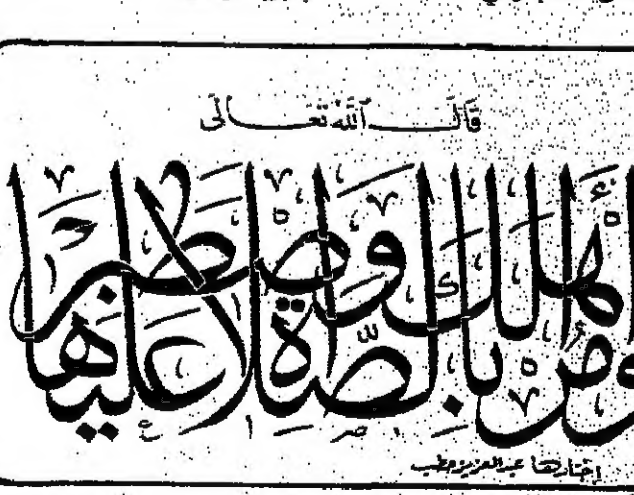 قَالَ ٱللَّهُ تَعَالَى
وأمر أهلك بالصلاة واصطبر عليها
إختارها عبد العزيز خطيب